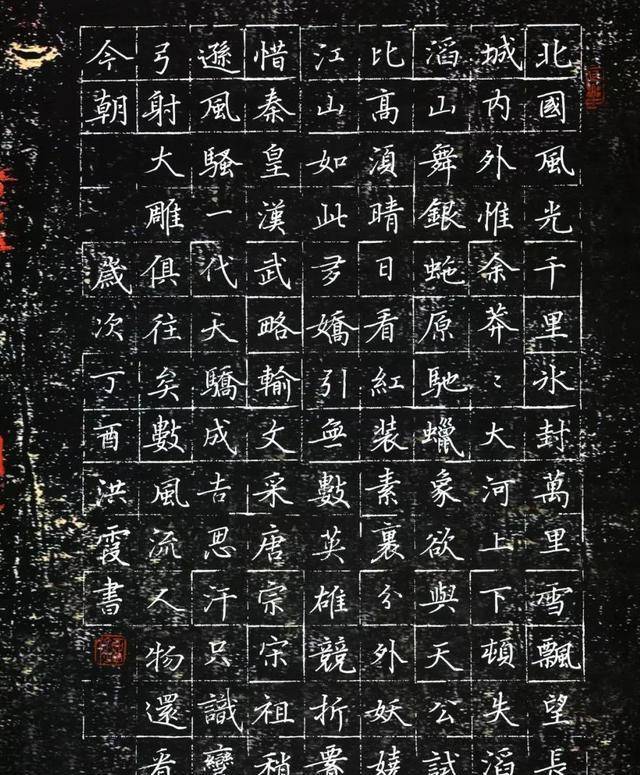 北國風光千里氷封萬里雪飄望長
城内外惟余莽〻大河上下頓失滔
滔山舞銀蛇原馳蠟象欲與天公試
比高須晴日看紅装素裹分外妖嬈
江山如此多嬌引無數英雄競折
惜秦皇漢武略輸文采唐宗宋祖稍
遜風騷一代天驕成吉思汗只識彎
弓射大雕俱往矣數風流人物還看
今朝 歲次丁酉洪霞書